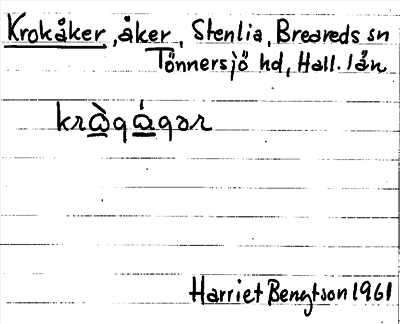 Krokåker, åker, Stenlia, Breareds sn
Tönnersjö hd, Hall. län
krὼqώqər
Harriet Bengtson 1961